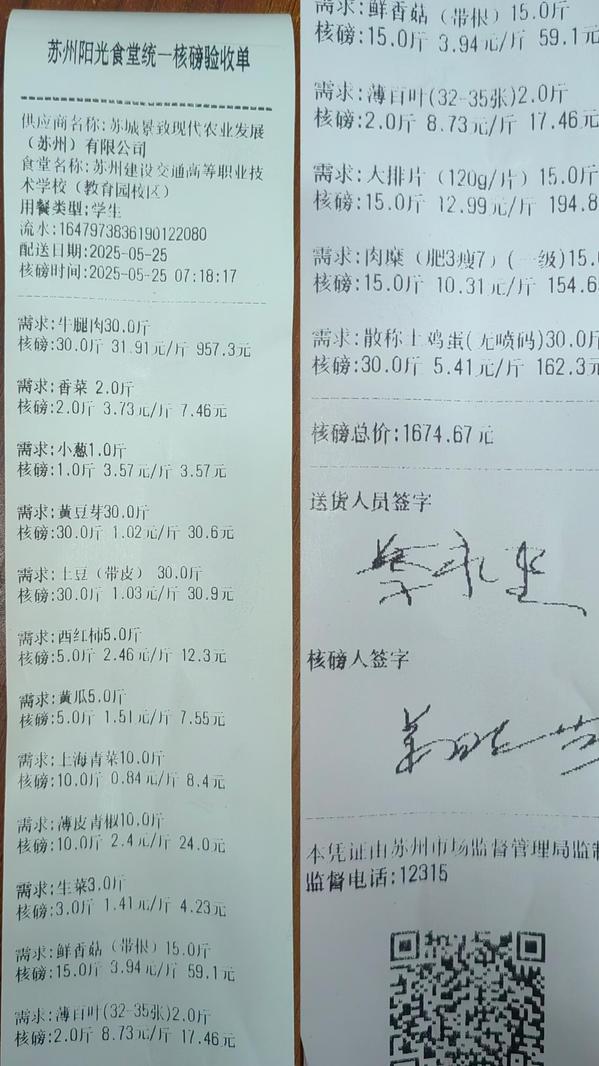 苏州阳光食堂统一核磅验收单
供应商名称:苏城景致现代农业发展
（苏州）有限公司
食堂名称:苏州建设交通高等职业技
术学校（教育园校区）
用餐类型:学生
流水:1647973836190122080
配送日期:2025-05-25
核磅时间:2025-05-25 07:18:17
需求:牛腿肉30.0斤
核磅:30.0斤 31.91元/斤 957.3元
需求:香菜 2.0斤
核磅:2.0斤 3.73元/斤 7.46元
需求:小葱1.0斤
核磅:1.0斤 3.57元/斤 3.57元
需求:黄豆芽30.0斤
核磅:30.0斤 1.02元/斤 30.6元
需求:土豆（带皮） 30.0斤
核磅:30.0斤 1.03元/斤 30.9元
需求:西红柿5.0斤
核磅:5.0斤 2.46元/斤 12.3元
需求:黄瓜5.0斤
核磅:5.0斤 1.51元/斤 7.55元
需求:上海青菜10.0斤
核磅:10.0斤 0.84元/斤 8.4元
需求:薄皮青椒10.0斤
核磅:10.0斤 2.4元/斤 24.0元
需求:生菜3.0斤
核磅:3.0斤 1.41元/斤 4.23元
需求:鲜香菇（带根）15.0斤
核磅:15.0斤 3.94元/斤 59.1元
需求:薄百叶(32-35张)2.0斤
核磅:2.0斤 8.73元/斤 17.46元
需求:鲜香菇（带根）15.0斤
核磅:15.0斤 3.94元/斤 59.1元
需求:薄百叶(32-35张)2.0斤
核磅:2.0斤 8.73元/斤 17.46元
需求:大排片（120g/片）15.0斤
核磅:15.0斤 12.99元/斤 194.8
需求:肉糜（肥3瘦7）(一级)15.0
核磅:15.0斤 10.31元/斤 154.6
需求:散称土鸡蛋(无喷码)30.0斤
核磅:30.0斤 5.41元/斤 162.3元
核磅总价:1674.67元
送货人员签字
核磅人签字
本凭证由苏州市场监督管理局监制
监督电话:12315